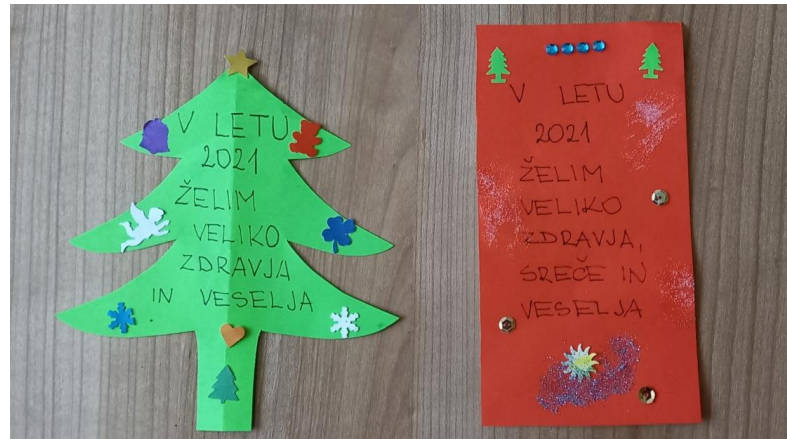 V LETU
2021
ŽELIM
VELIKO
ZDRAVJA
IN VESELJA
V LETU
2021
ŽELIM
VELIKO
ZDRAVJA,
SREČE IN
VESELJA